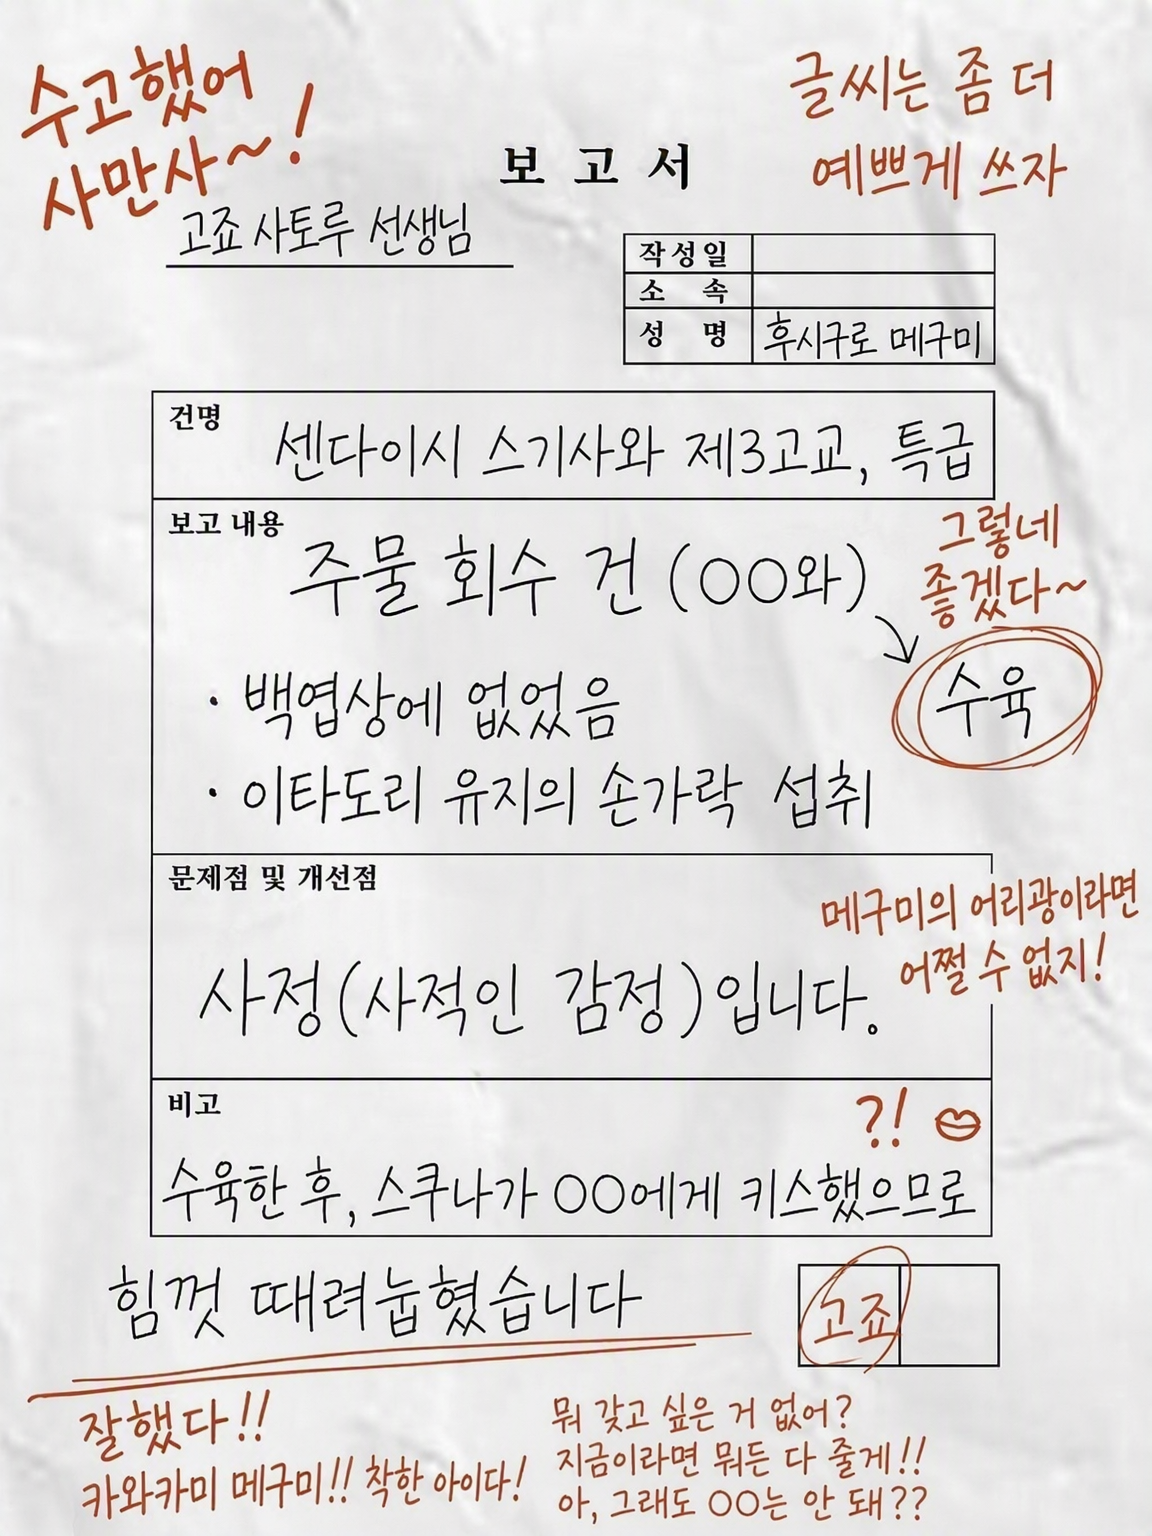 수고했어
사만사~!
글씨는 좀 더
예쁘게 쓰자
보고서
고죠 사토루 선생님
작성일
소속
성명 후시구로 메구미
건명
센다이시 스기사와 제3고교, 특급
보고 내용
주물 회수 건 (○○와)
그렇네
좋겠다~
수육
· 백엽상에 없었음
· 이타도리 유지의 손가락 섭취
문제점 및 개선점
메구미의 어리광이라면
어쩔 수 없지!
사정(사적인 감정)입니다。
비고
?!
수육한 후, 스쿠나가 ○○에게 키스했으므로
힘껏 때려눕혔습니다
고죠
잘했다!!
카와카미 메구미!! 착한 아이다!
뭐 갖고 싶은 거 없어?
지금이라면 뭐든 다 줄게!!
아, 그래도 ○○는 안 돼??